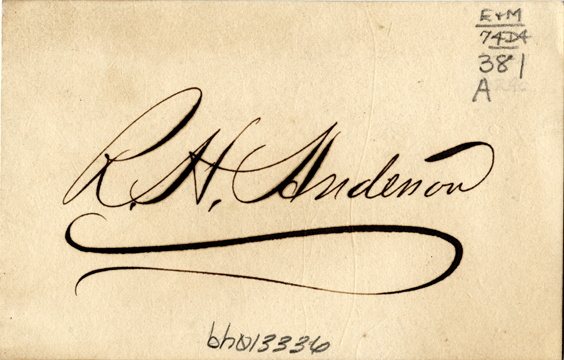 E & M
74D4
381
A
R. H. Anderson
bh013336